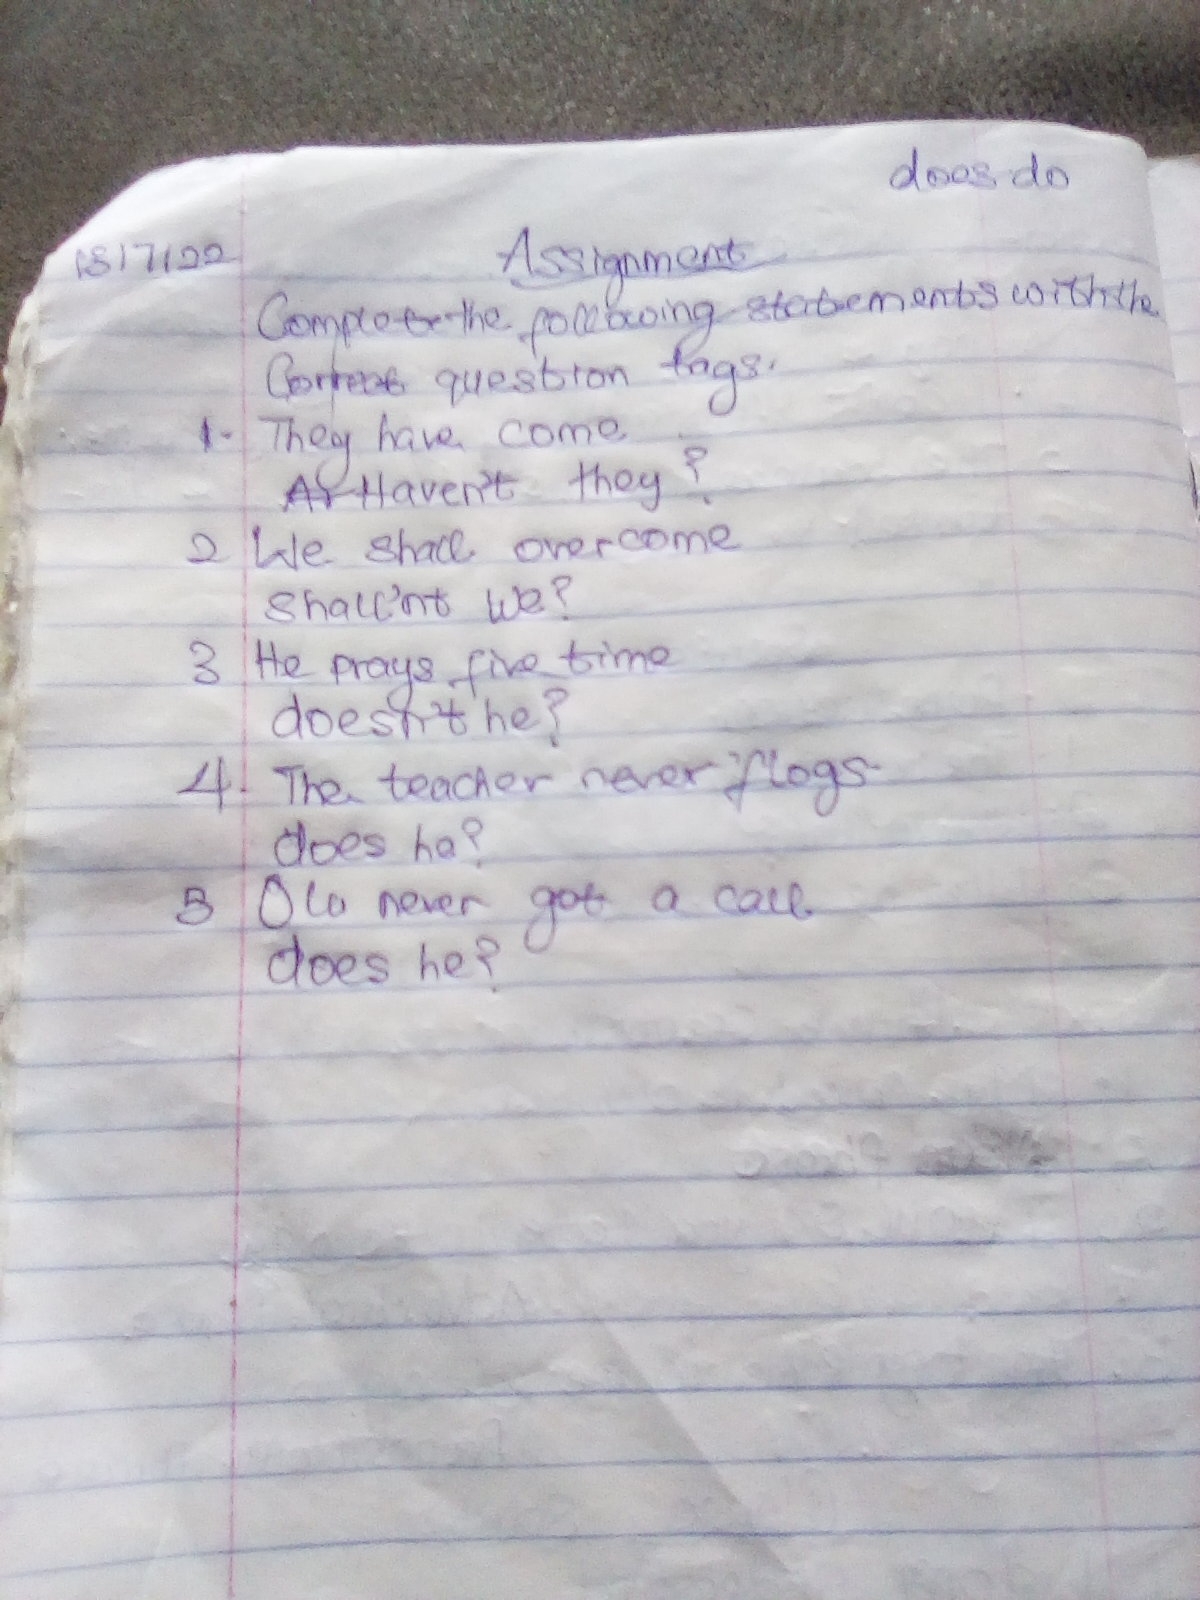 does do
Assignment
Complete the following statements with the
Correct question tags.
1. They have come
Haven't they?
2 We shall overcome
Shall'nt we?
3 He prays five time
doesn't he?
4. The teacher never flogs
does he?
5 Olu never got a call
does he?